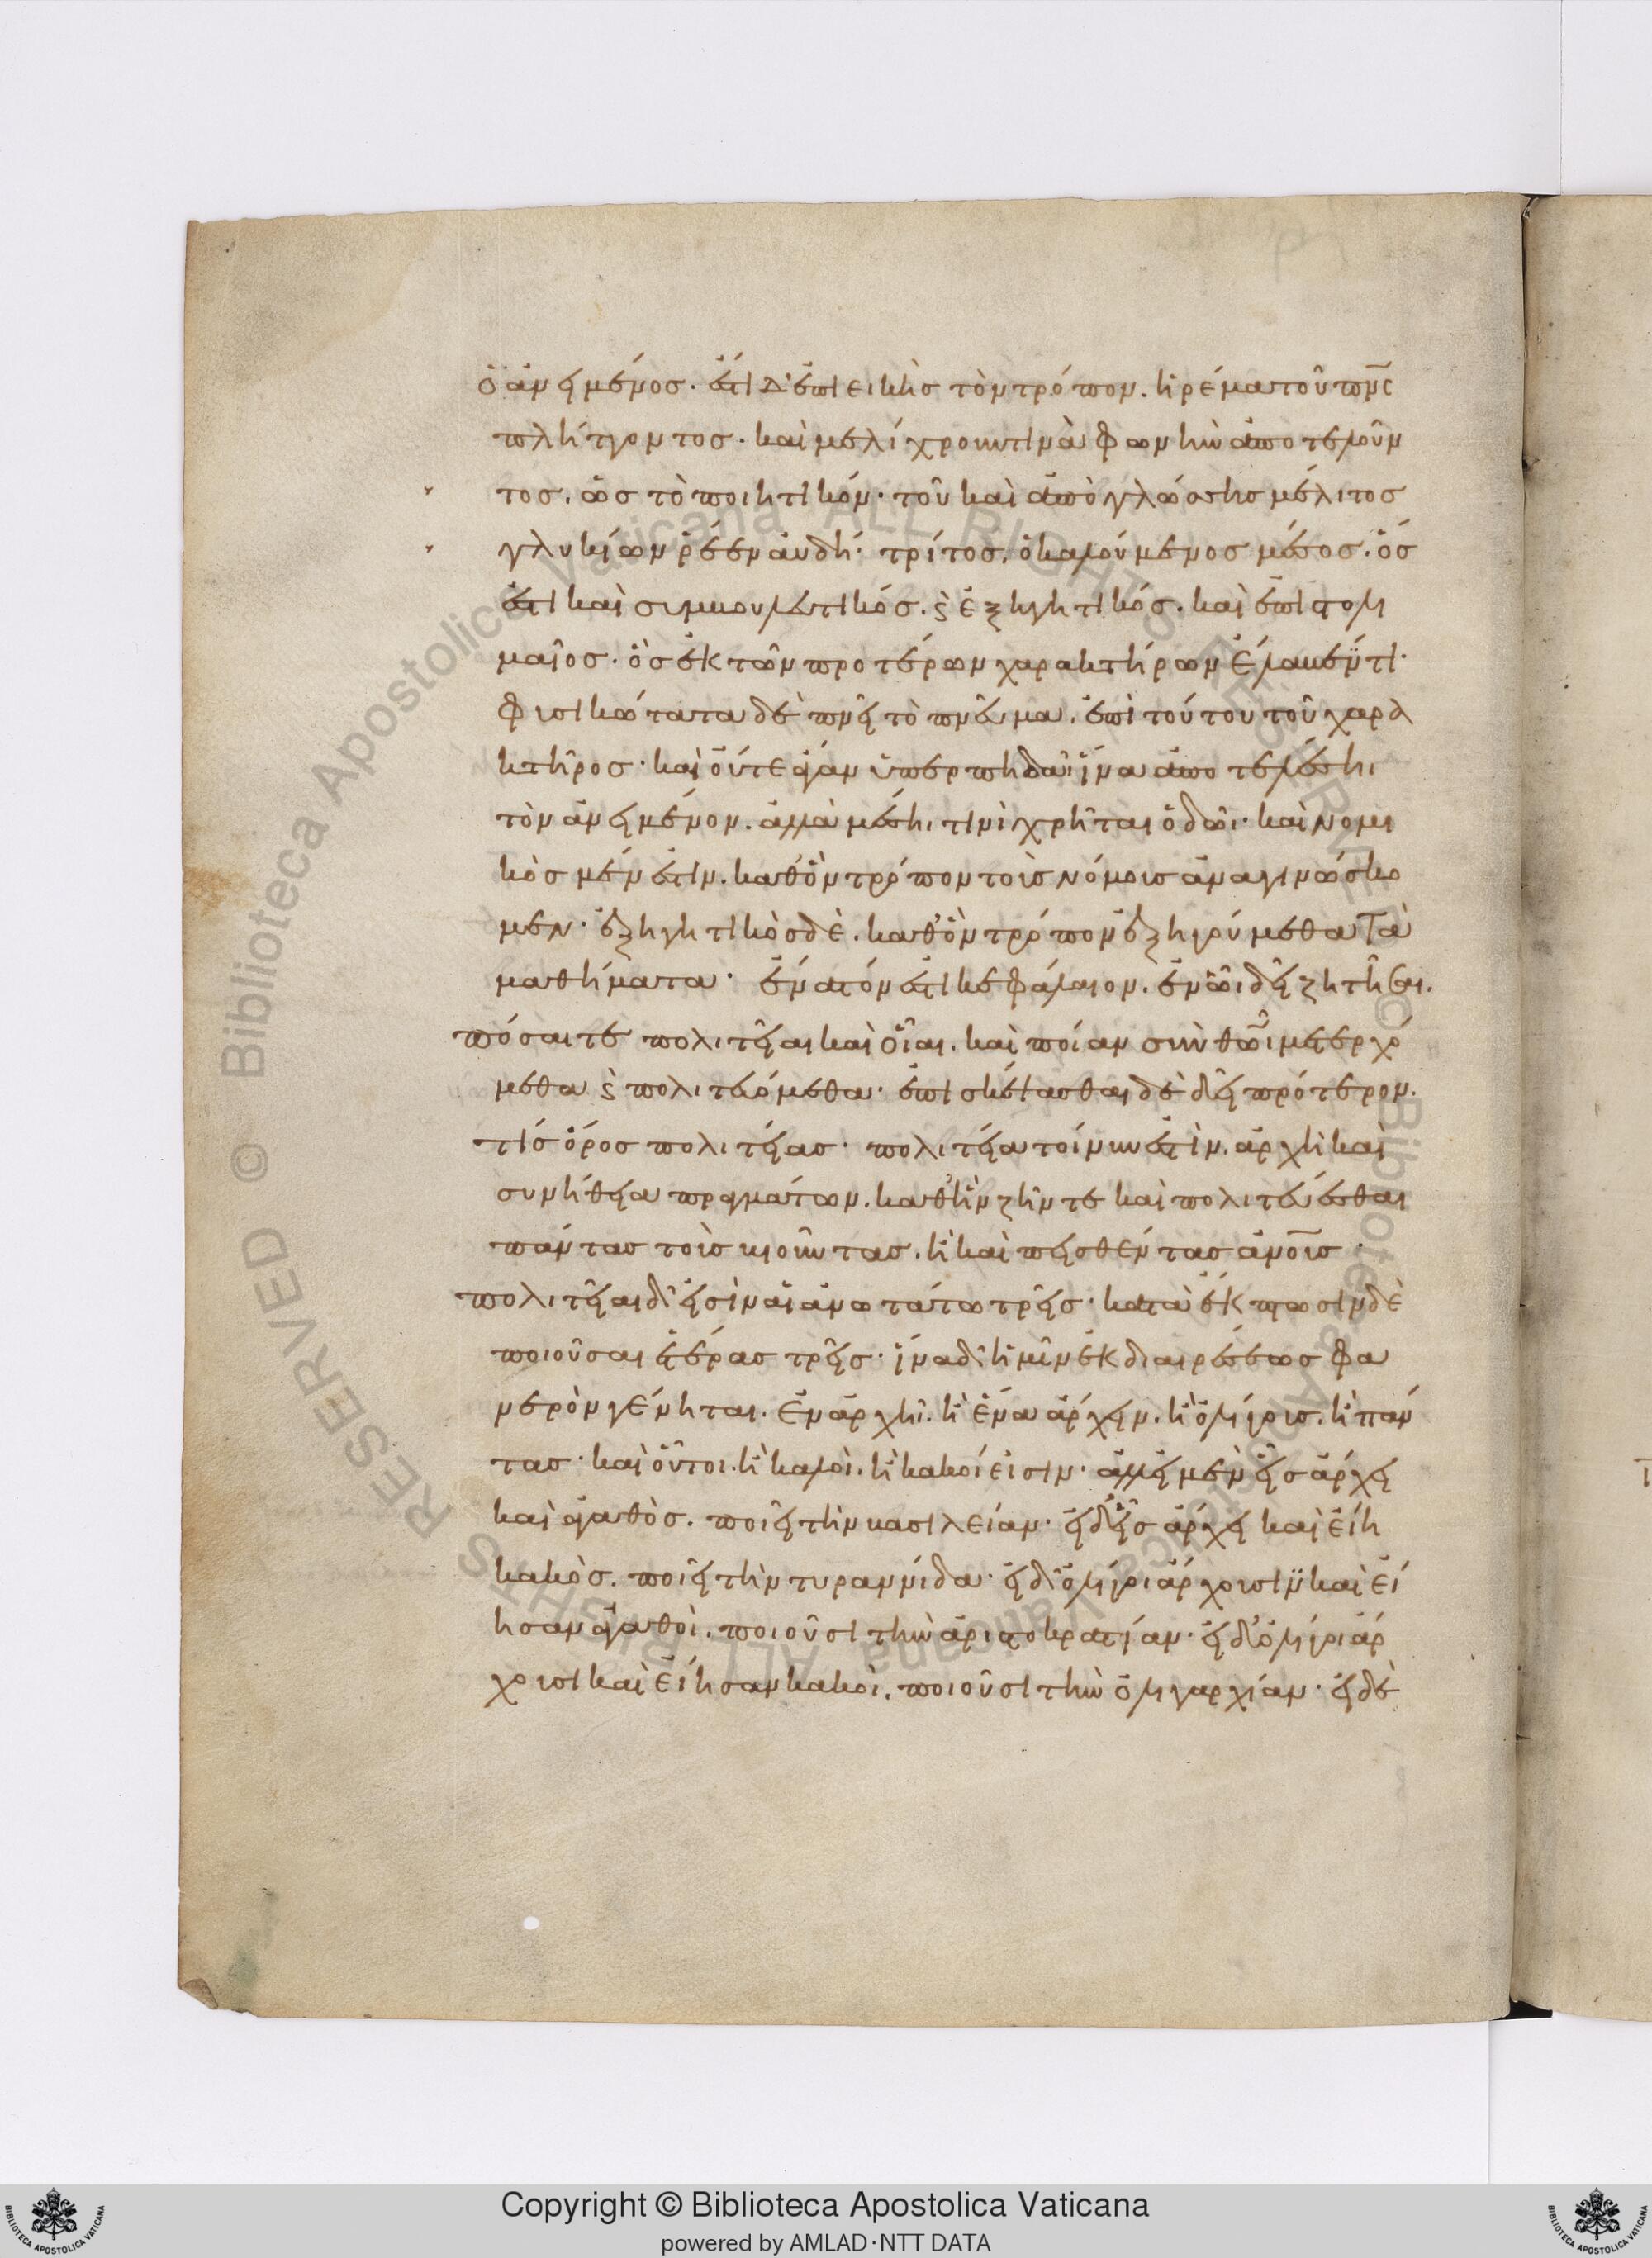 ὁ ἀνειμένος· ἐστὶ δ' ἐπιεικὴς τὸν τρόπον. ἠρέμα τοῦ πν̅ς
πλήττοντος· καὶ μελίχρουν τινὰ φωνὴν ἀποτελοῦν
τος. ὡς τὸ ποιητικόν· τοῦ καὶ ἀπὸ γλώσσης μέλιτος
γλυκίων ῥέεν αὐδή· τρίτος. ὁ καλούμενος μέσος. ὅς
ἐστι καὶ συμβουλευτικός. ϗ ἐξηγητικός. καὶ ἐπιστολι
μαῖος· ὃς ἐκ τῶν προτέρων χαρακτήρων ἔλαβέν τι·
φυσικώτατα δὲ πνεῖ τὸ πνεῦμα. ἐπὶ τούτου τοῦ χαρα
κτῆρος· καὶ οὔτε ἄγαν ὑπερπηδᾶι ἵνα ἀποτελέσηι
τὸν ἀνειμένον. ἀλλὰ μέσηι τινὶ χρῆται ὁδῶι· καὶ νομι
κὸς μέν ἐστιν. καθ' ὃν τρόπον τοῖς νόμοις ἀναγινώσκο
μεν· ἐξηγητικὸς δὲ. καθ' ὃν τρόπον ἐξηγούμεθα τὰ
μαθήματα· ἔνατόν ἐστι κεφάλαιον. ἐν ὧι δεῖ ζητῆσαι.
πόσαι τε πολιτεῖαι καὶ οἷαι. καὶ ποίαν σὺν θῶι μετερχό
μεθα ϗ πολιτευόμεθα· ἐπισκέψασθαι δὲ δεῖ πρότερον.
τίς ὅρος πολιτείας· πολιτεία τοίνυν ἐστὶν. ἀρχὴ καὶ
συνήθεια πραγμάτων. καθ' ἣν ζῆν τε καὶ πολιτεύεσθαι
πάντας τοὺς βιοῦντας. ἢ καὶ πεισθέντας ἀνοῖς·
πολιτεῖαι δ' εἰσὶν αἱ ἀνωτάτω τρεῖς· κατὰ ἔκπτωσιν δὲ
ποιοῦσαι ἑτέρας τρεῖς· ἵνα δ' ἡμῖν ἐκ διαιρέσεως φα
νερὸν γένηται. ἐν ἀρχῆι. ἢ ἕνα ἄρχειν. ἢ ὀλίγους. ἢ πάν
τας· καὶ οὗτοι. ἢ καλοὶ. ἢ κακοί εἰσιν· ἀλλ' εἰ μὲν εἷς ἄρχει
καὶ ἀγαθὸς. ποιεῖ τὴν βασιλείαν· εἰ δ' εἷς ἄρχει καὶ εἴη
κακὸς. ποιεῖ τὴν τυραννίδα· εἰ δ' ὀλίγοι ἄρχουσιν καὶ εἴ
ησαν ἀγαθοὶ. ποιοῦσι τὴν ἀριστοκρατίαν· εἰ δ' ὀλίγοι ἄρ
χουσι καὶ εἴησαν κακοὶ. ποιοῦσι τὴν ὀλιγαρχίαν· εἰ δὲ
Copyright © Biblioteca Apostolica Vaticana
powered by AMLAD·NTT DATA